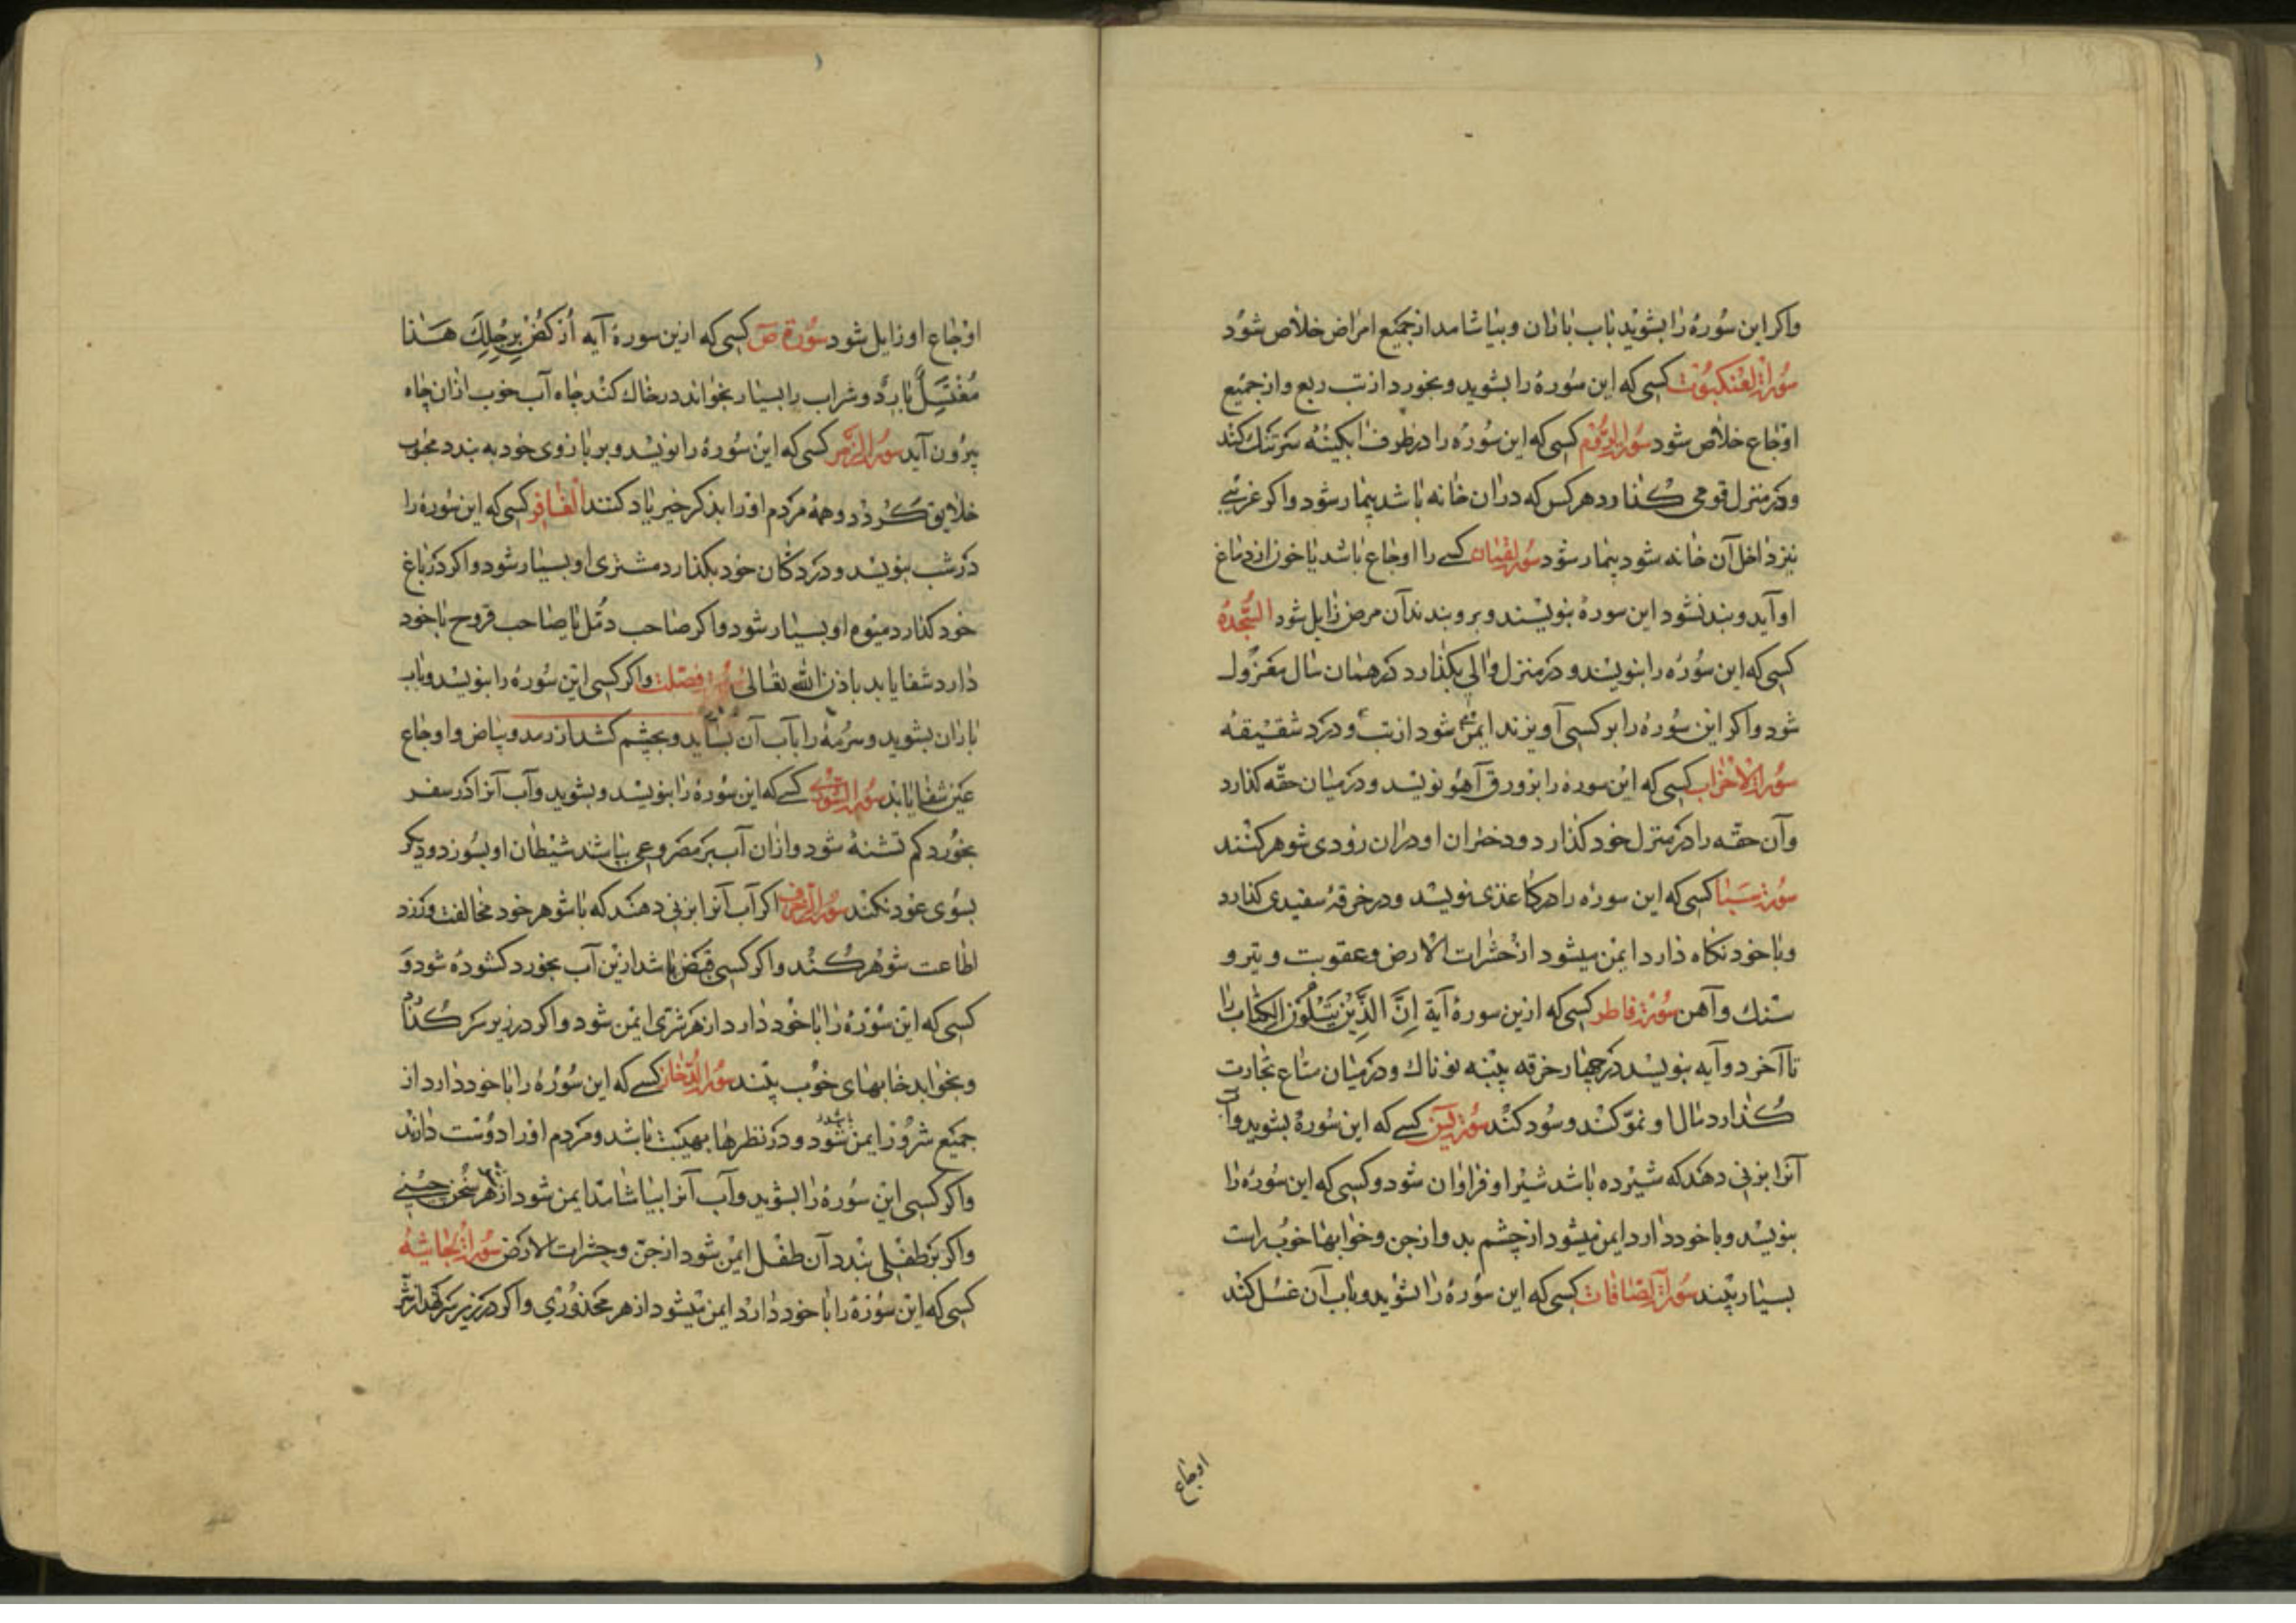 واکر این سُورهٔ را بشویَد باب باران و بیاشامد از جمیع امراض خلاص شوَد
سُورة العنکبوت کسی که این سُورهٔ را بشوید و بخورد از تب ربع و از جمیع
اوجاع خلاص شود سُورة الرُّوم کسی که این سُورهٔ را در ظرف آبکینهٔ سرتنک کند
و در منزل قومی کذارد هر کس که در ان خانه باشد بیمار شود و اکر غریبی
نیز داخل آن خانه شود بیمار شود سُورة لقمان کسے را اوجاع باشد یا خون از دماغ
او آید و بند نشود این سورهٔ بنویسند و برو بندند آن مرض زایل شود السَّجدهٔ
کسی که این سُورهٔ را بنویسد و در منزل والی بکذارد در همان سال معزُول
شود و اکر این سُورهٔ را بر کسی آویزند ایمن شود از تب و درد شقیقهٔ
سُورة الاحزاب کسی که این سورهٔ را بر ورق آهو نویسد و در میان حقّه کذارد
و آن حقّه را در منزل خود کذارد و دختران او در ان زودی شوهر کنند
سُورة سَبَا کسی که این سورهٔ را در کاغذی نویسد و در خرقهٔ سفیدی کذارد
و با خود نکاه دارد ایمن میشود از حشرات الارض و عقوبت و تیر و
سنک و آهن سُورة فاطر کسی که ازین سورهٔ آیة اِنَّ الَّذِیْنَ یَتْلُوْنَ الکِتٰابَ را
تا آخر دو آیه بنویسد در چهار خرقه پنبه نوناک و در میان متاع تجارت
کُذارد مال او نموّ کند و سُود کند سُورة یٰسٓ کسے که این سُورهٔ بشوید و آب
آنرا بزنی دهند که شیرده باشد شیر او فراوان شود و کسی که این سُورهٔ را
بنویسد و با خود دارد ایمن میشود از چشم بد و از جن و خوابها خوب راست
بسیار بیند سُورة الصّافات کسی که این سُورهٔ را بشوید و باب آن غسل کند
اوجاع
اوجاع او زایل شود سُورة صٓ کسی که ازین سورهٔ آیه اُرْکُضْ بِرِجْلِکَ هَذا
مُغْتَسَلٌ بارِدٌ و شراب را بسیار بخواند در خاک کند چاه آب خوب ازان چاه
بیرون آید سُورة الزُّمر کسی که این سُورهٔ را نویسد و بر بازوی خود به بندد محبوب
خلایق کردد و همه مردم او را بذکر خیر یاد کنند الغافر کسی که این سُورهٔ را
در شب بنویسد و در دکّان خود بکذارد مشتری او بسیار شود و اکر در باغ
خود کذارد میوه او بسیار شود و اکر صاحب دمّل یا صاحب قروح با خود
دارد شفا یابد باذن الله تعالی سُورة فصّلت و اکر کسی این سُورهٔ را بنویسد و باب
باران بشوید و سرمهٔ را بآب آن بساید و بچشم کشد از رمد و بیاض و اوجاع
عین شفا یابد سُورة الشّوری کسے که این سُورهٔ را بنویسد و بشوید و آب آنرا در سفر
بخورد کم تشنهٔ شود و ازان آب بر مصروعی بپاشد شیطان او بسوزد و دیکر
بسوی عود نکند سُورة الزخرف اکر آب آنرا بزنی دهند که با شوهر خود مخالفت ورزد
اطاعت شوهر کُند و اکر کسی قبض باشد ازین آب بخورد کشودهٔ شود وَ
کسی که این سُورهٔ را با خود دارد از هر شری ایمن شود و اکر در زیر سر کذارد
و بخوابد خابهای خوب بیند سُورة الدّخان کسے که این سُورهٔ را با خود دارد از
جمیع شرور ایمن شود و در نظرها بهیبت باشد و مردم او را دوست دارند
و اکر کسی این سُورهٔ را بشوید و آب آنرا بیاشامد ایمن شود از هر سخن چینے
و اکر بر طفلی بندد آن طفل ایمن شود از جن و حشرات الارض سُورة الجاثیهٔ
کسی که این سُورهٔ را با خود دارد ایمن میشود از هر محذوری و اکر در زیر سر